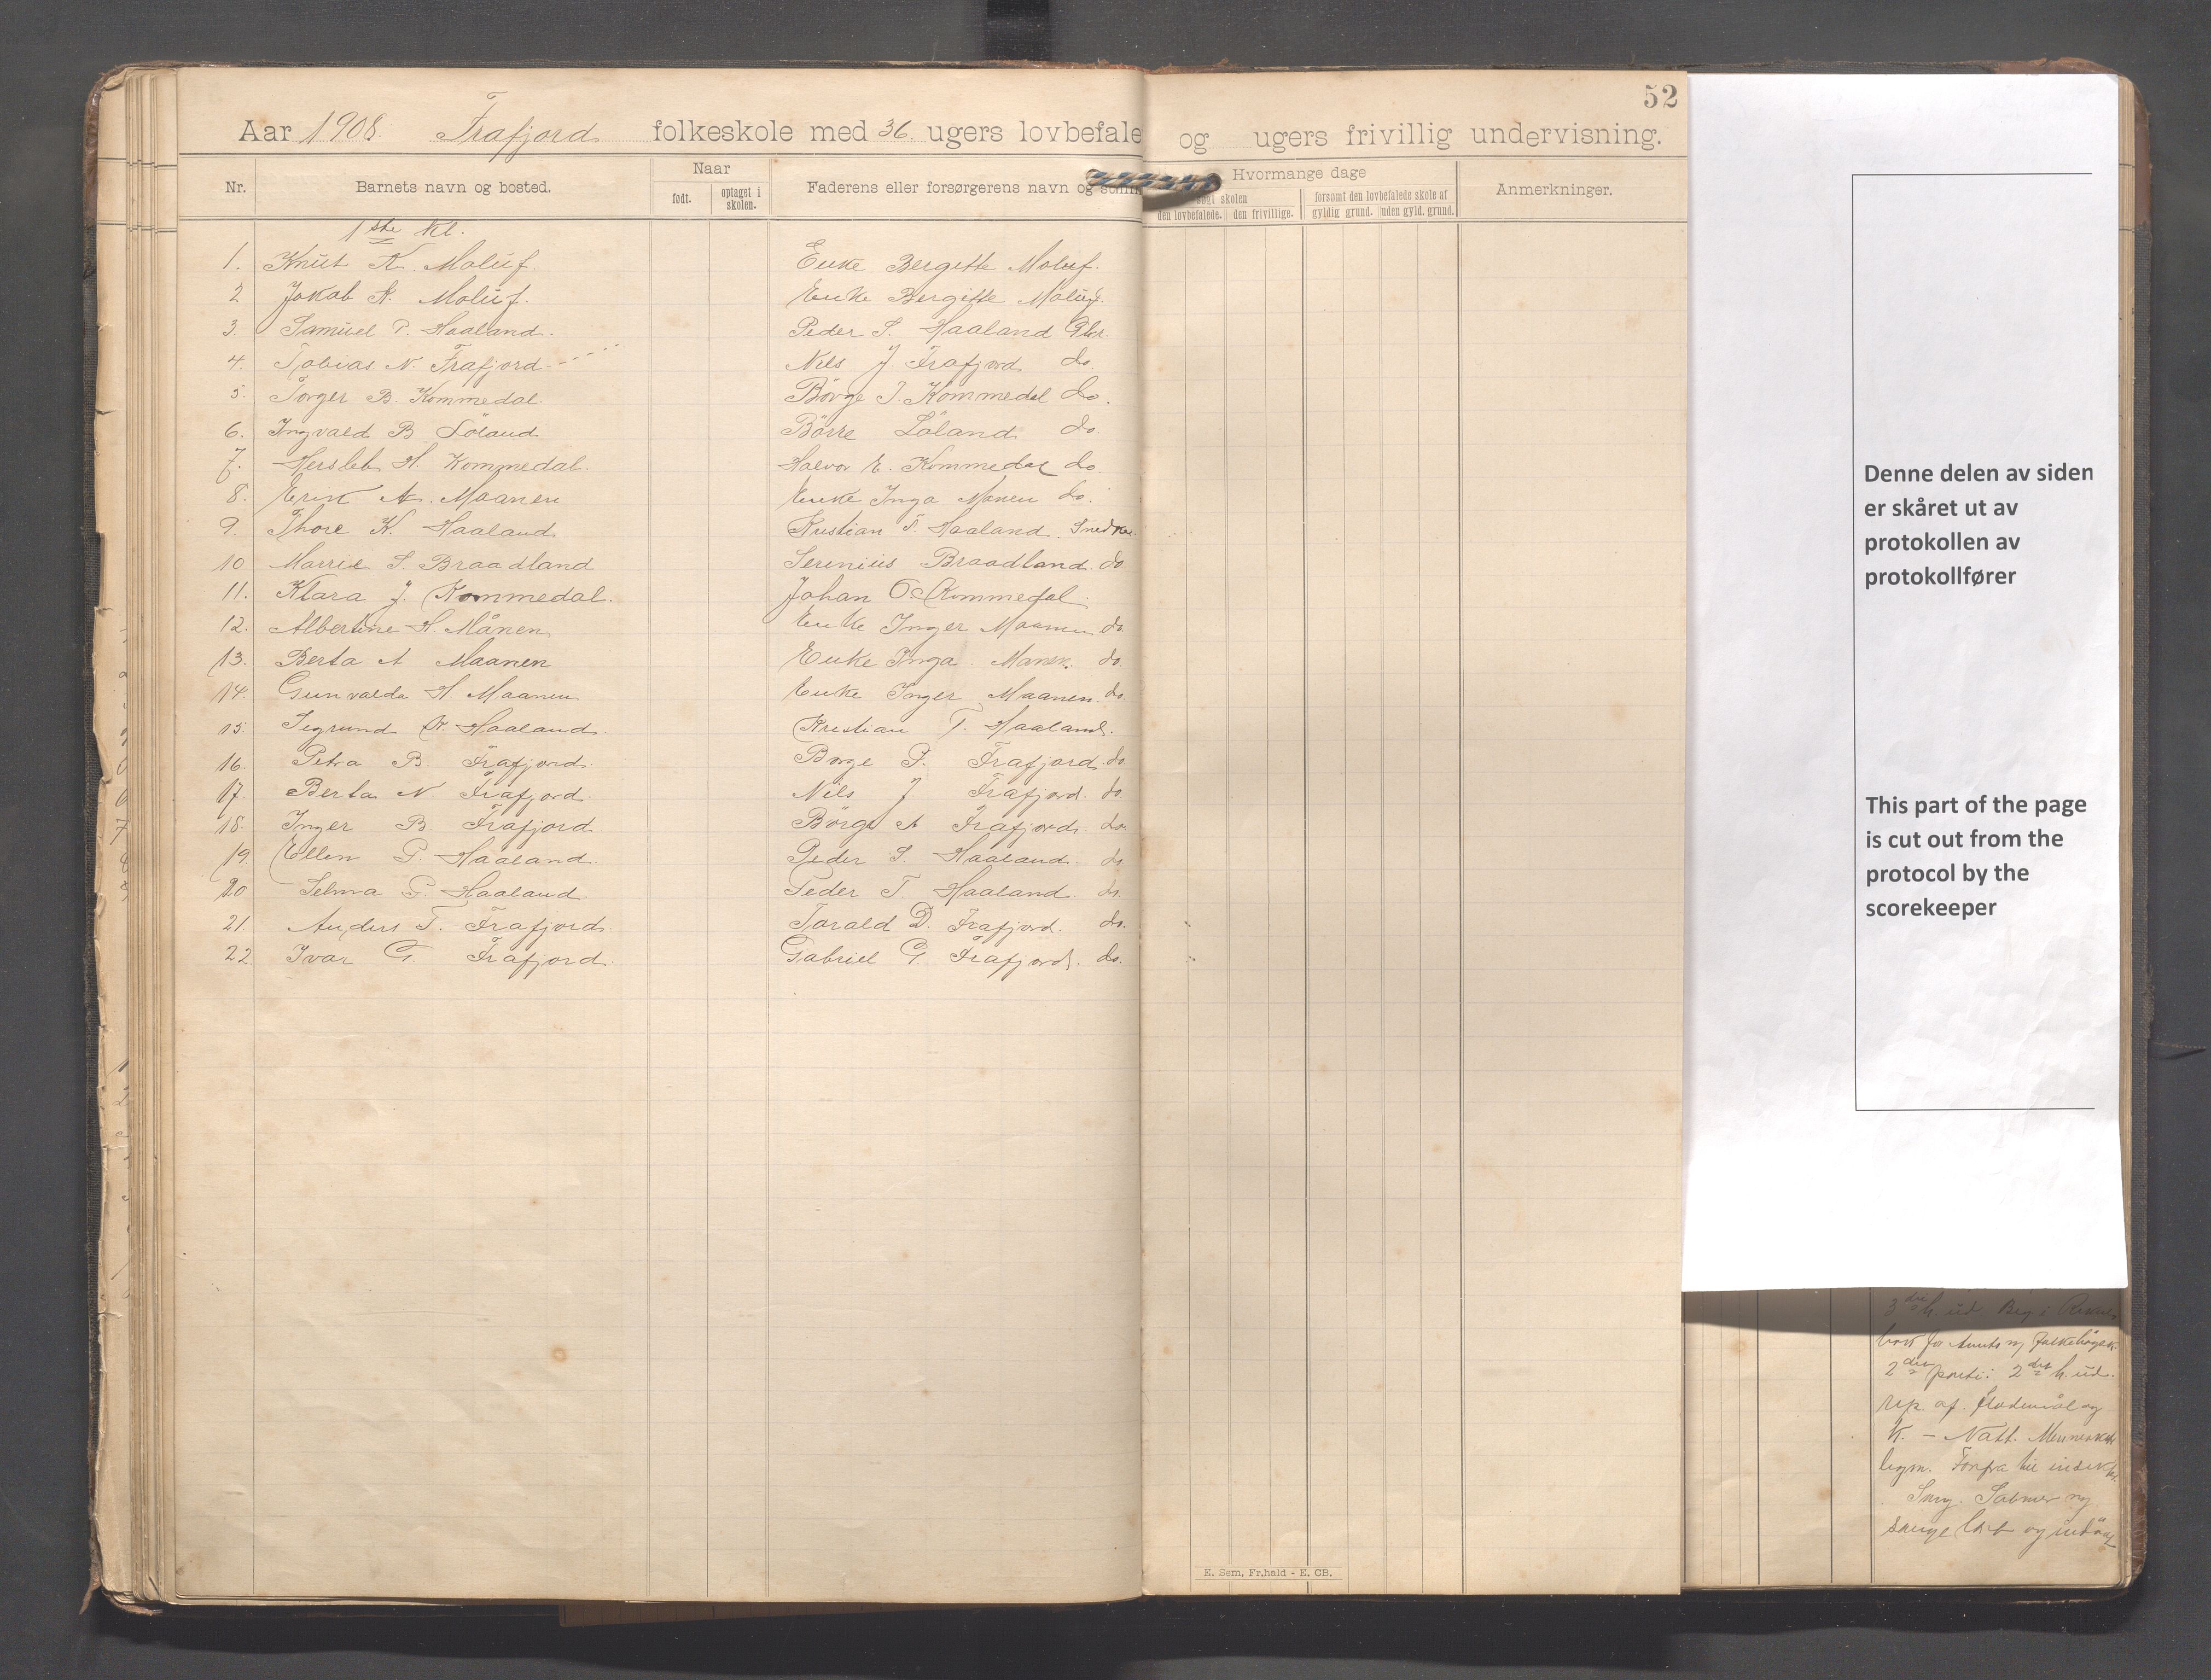 52
Aar 1908. Frafjord folkeskole med 36. ugers lovbefale og ugers frivillig undervisning.
Nr. Barnets navn og bosted. Naar født. optaget i skolen. Faderens eller forsørgerens navn og Hvormange dage søgt skolen den lovbefalede. den frivillige. forsømt den lovbefalede skole af gyldig grund. uden gyld. grund. Anmerkninger.
1ste Kl.
1. Knut K. Maluf. Enke Bergitte Maluf.
2 Jakob K. Maluf. Enke Bergitte Maluf.
3. Samuel P. Haaland. Peder S. Haaland Gbr.
4. Tobias N. Frafjord Nils J. Frafjord do.
5. Torger B. Kommedal. Börge T. Kommedal do.
6. Ingvald B Löland Börre Löland do.
7. Hersleb H. Kommedal. Halvor E. Kommedal do.
8. Erik A. Maanen Enke Inga Manen do.
9. Thore K. Haaland Kristian T. Haaland. Snedker
10 Marrie S. Braadland Serenius Braadland. do
11. Klara J. Kommedal. Johan O. Kommedal
12. Albertine H. Månen Enke Inger Maanen do.
13. Berta A Maanen Enke Inga Manen. do.
14. Gunvalda H. Maanen Enke Inger Maanen. do.
15. Sigrund K. Haaland. Kristian T. Haaland.
16. Petra B. Frafjord. Børge P. Frafjord. do.
17. Berta N. Frafjord. Nils J Frafjord. do.
18. Inger B Frafjord. Börge A Frafjord do.
19. Ellen P. Haaland. Peder S. Haaland. do
20 Selma P. Haaland. Peder T. Haaland. do.
21. Anders T. Frafjord. Torald D. Frafjord. do.
22. Ivar G. Frafjord. Gabriel G. Frafjord. do.
E. Sem, Fr.hald - E. CB.
Denne delen av siden
er skåret ut av
protokollen av
protokollfører
This part of the page
is cut out from the
protocol by the
scorekeeper
3die h. ud Beg i
bok for Amts og folkehögsk.
2den parti: 2det h. ud.
rep. af og
K. – Natt. Menneskets
legm. Forfra til insekter.
Sang. Salmer og
sange lært og indövet